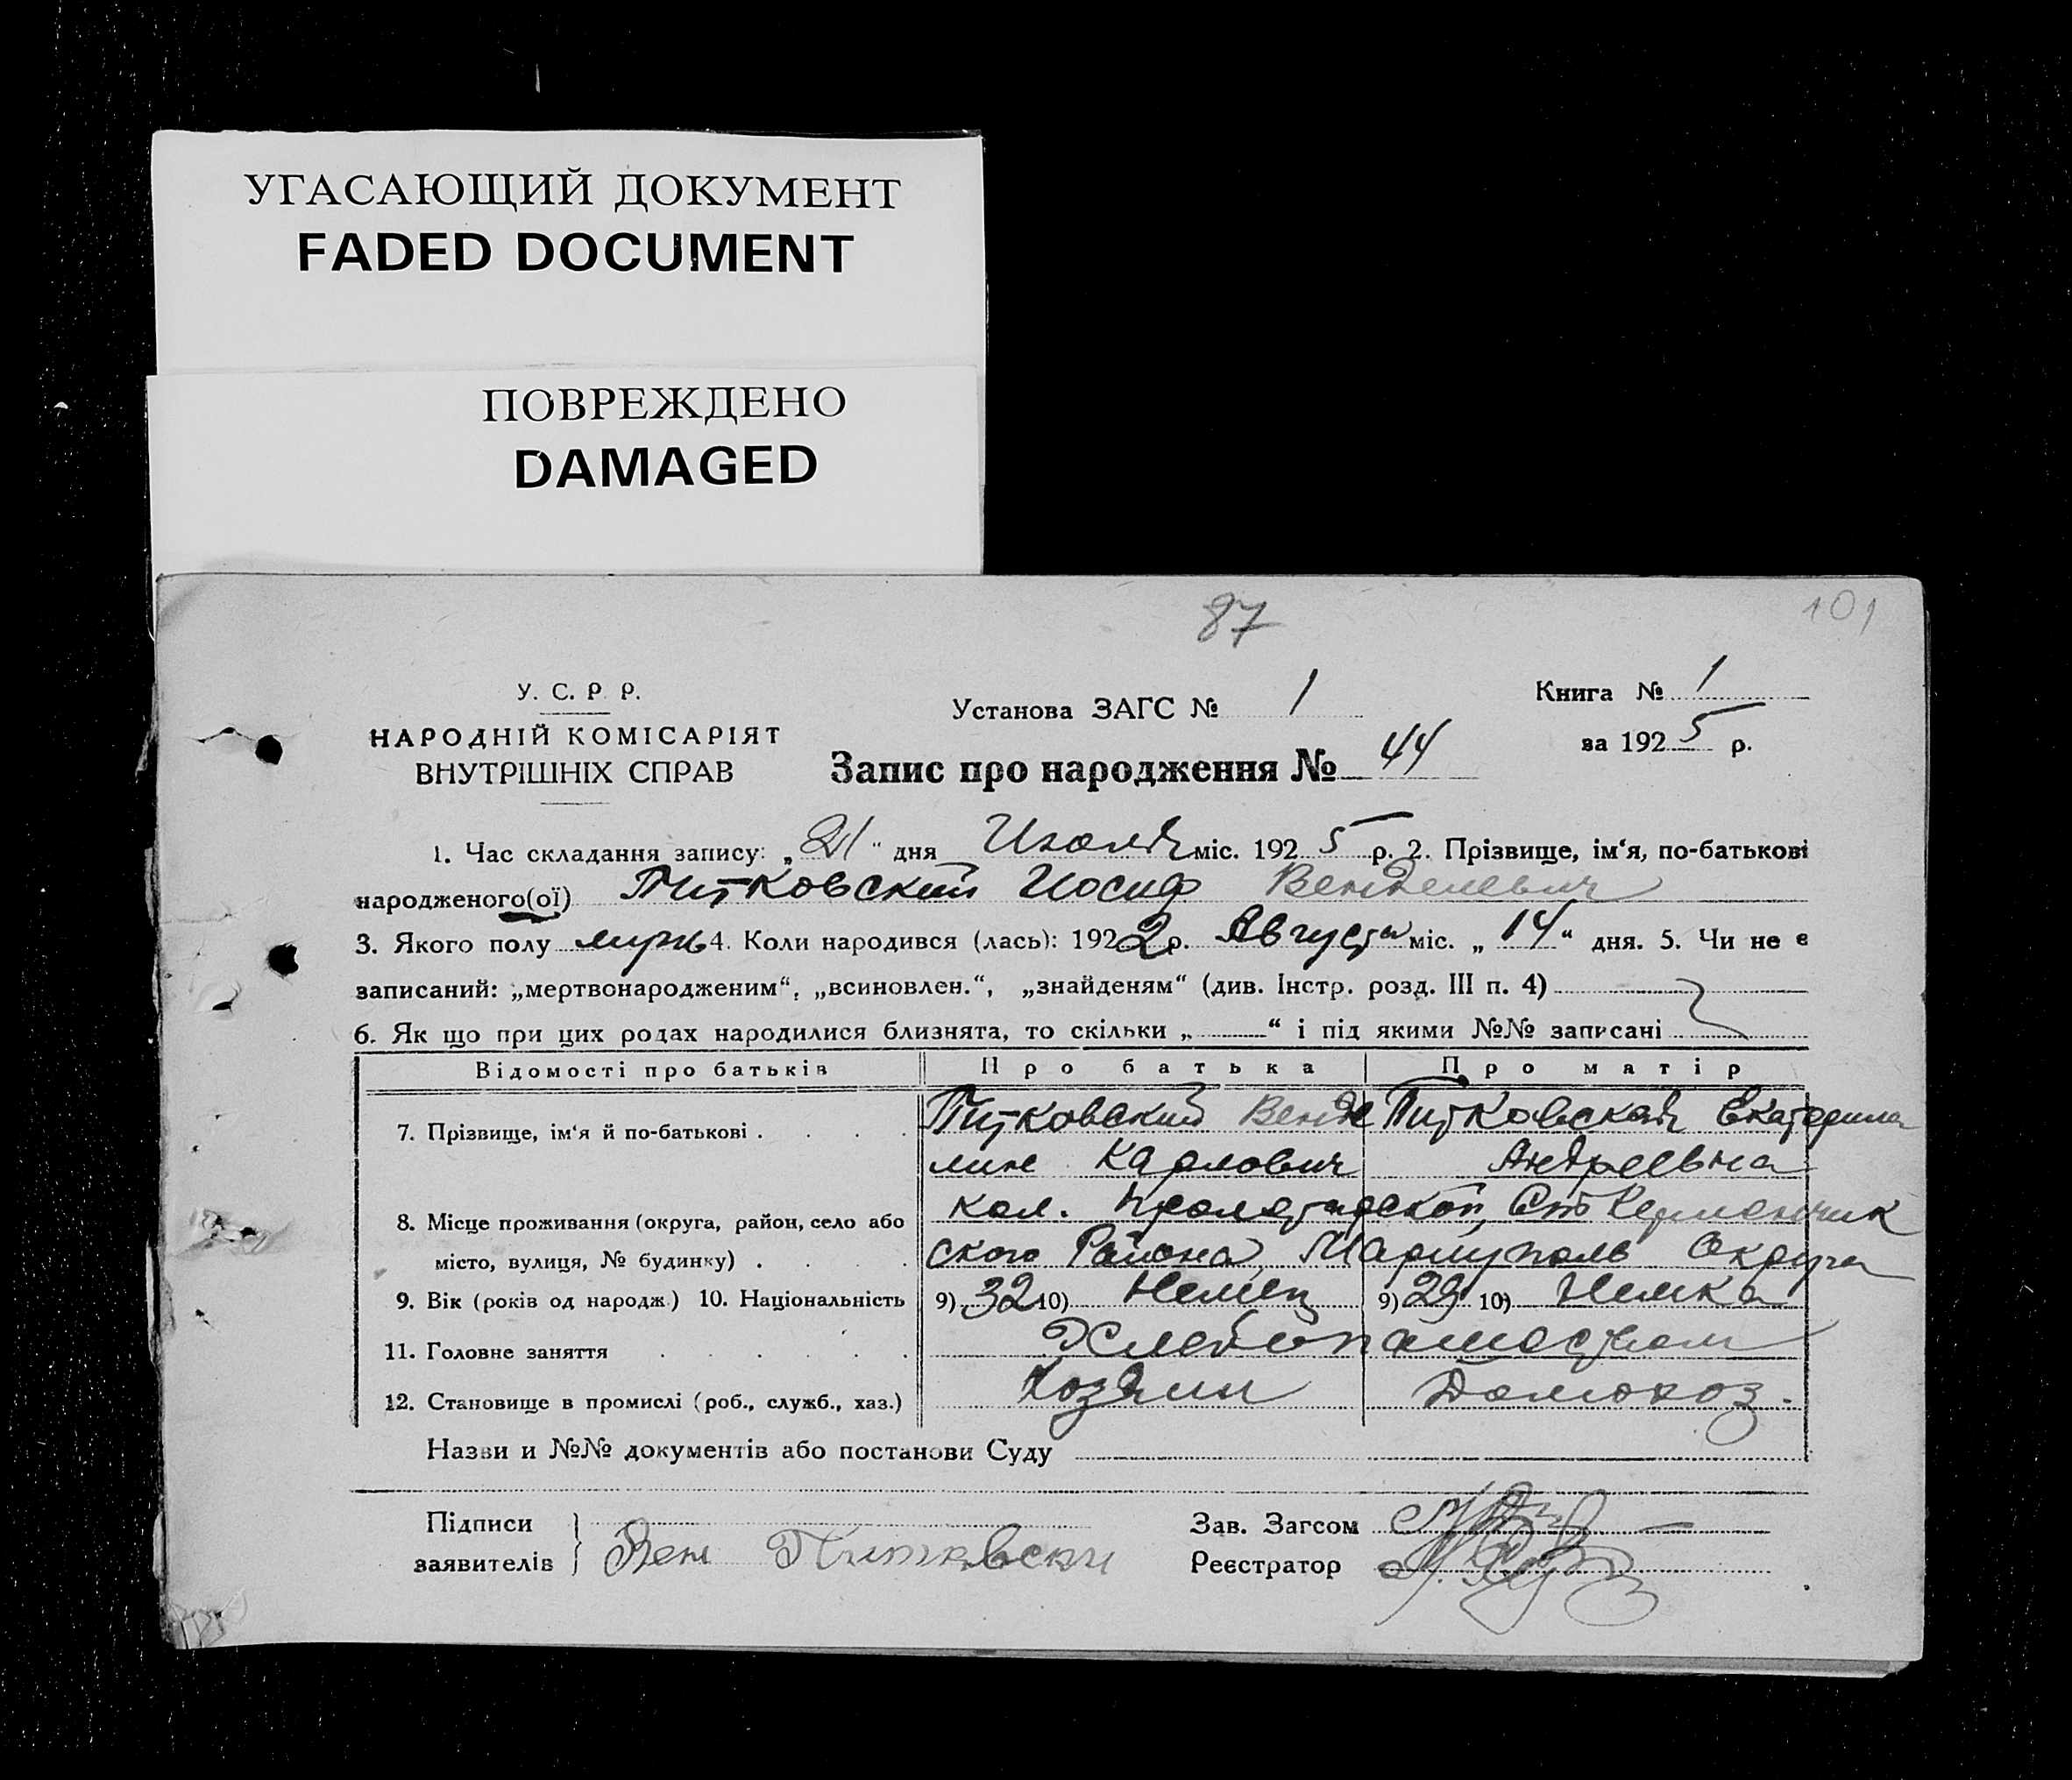 УГАСАЮЩИЙ ДОКУМЕНТ
FADED DOCUMENT
ПОВРЕЖДЕНО
DAMAGED
87
101
У. С. Р. Р.
НАРОДНІЙ КОМІСАРІЯТ
ВНУТРІШНІХ СПРАВ
Установа ЗАГС № 1
Запис про народження № 44
Книга № 1
за 1925 р.
1. Час складання запису: „21“ дня Июля міс. 1925 р. 2. Прізвище, ім‘я, по-батькові
народженого(ої) Питковский Иосиф Венделевич
3. Якого полу мужс 4. Коли народився (лась): 1922 р. Августа міс. „14“ дня. 5. Чи не є
записаний: „мертвонародженим“, „всиновлен.“, „знайденям“ (див. Інстр. розд. III п. 4)
6. Як що при цих родах народилися близнята, то скільки „ “ і під якими №№ записані
Відомості про батьків Про батька Про матір
7. Прізвище, ім‘я й по-батькові . . . . Питковский Венде Питковская Екатерина
лин Карлович Андреевна
8. Місце проживання (округа, район, село або кол. Пролетарской, Ст Керменчик
місто, вулиця, № будинку) . . . . ского Района, Мариуполь Округа
9. Вік (років од народж.) 10. Національність 9) 32 10) Немец 9) 29 10) Немка
11. Головне заняття . . . . . . Хлебопашеством
12. Становище в промислі (роб., служб., хаз.) Хозяин Домохоз.
Назви и №№ документів або постанови Суду
Підписи
заявителів } Вен Питковски
Зав. Загсом
Реєстратор